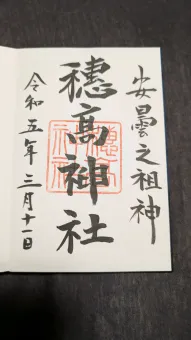 安曇之祖神
穗髙神社
令和五年三月十一日